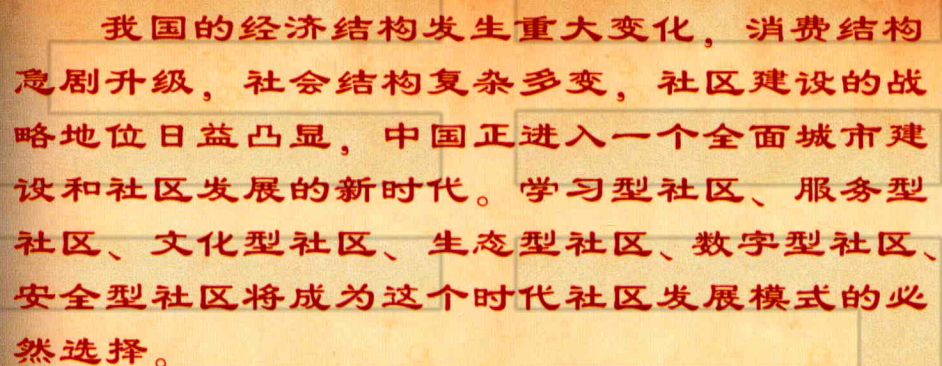 我国的经济结构发生重大变化，消费结构
急剧升级，社会结构复杂多变，社区建设的战
略地位日益凸显，中国正进入一个全面城市建
设和社区发展的新时代。学习型社区、服务型
社区、文化型社区、生态型社区、数字型社区、
安全型社区将成为这个时代社区发展模式的必
然选择。